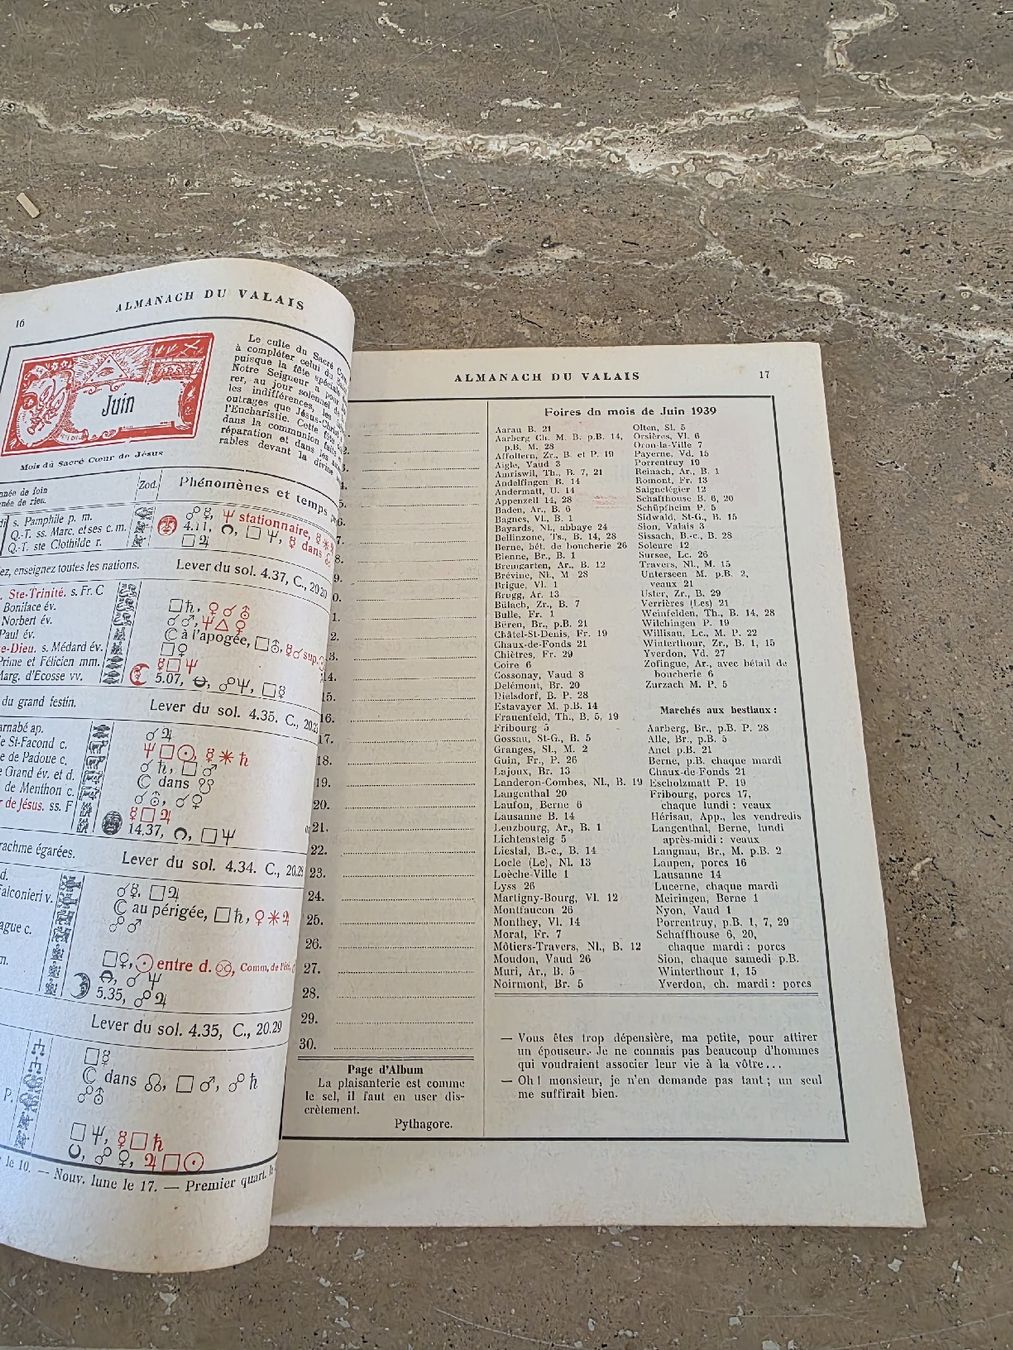 16
ALMANACH DU VALAIS
Juin
Mois du Sacré Cœur de Jésus
Le culte du Sacré
à compléter celui du
puisque la fête spéciale
Notre Seigneur a
rer, au jour solennel
les indifférences, les
outrages que Jésus-Christ
l'Eucharistie. Cette fête
dans la communion
réparation et dans les
rables devant la divine
née de foin
née de rien.
Zod.
Phénomènes et temps
s. Pamphile p. m.
Q.-T. ss. Marc. et ses c. m.
Q.-T. ste Clothilde r.
☍ ☿, ♆ stationnaire,
4.11, □ ♆, ☿ dans
□ ♃
ez, enseignez toutes les nations.
Lever du sol. 4.37, C., 20
Ste-Trinité. s. Fr. C
Boniface év.
Norbert év.
Paul év.
e-Dieu. s. Médard év.
Prime et Félicien mm.
Marg. d'Ecosse vv.
□ ♄, ♀ ☌ ♁
☌ ♂, ♆ △ ♀
☾ à l'apogée, □ ♁, ☿ ☌ sup.
□ ♀
☿ □ ♆
5.07, ☍ ♆, □ ☿
du grand festin.
Lever du sol. 4.35. C., 20.25
arnabé ap.
e St-Facond c.
e de Padoue c.
e Grand év. et d.
de Menthon c.
r de Jésus. ss. F
☌ ♃
♆ □ ☉, ☿ ✱ ♄
☌ ♄, □ ♂
☾ dans ☋
☌ ♁, ☌ ♀
☿ □ ♃
14.37, □ ♆
rachme égarées.
Lever du sol. 4.34. C., 20.28
d.
alconieri v.
ague c.
m.
☌ ☿, □ ♃
☾ au périgée, □ ♄, ♀ ✱ ♃
☍ ♂
□ ♀, ☉ entre d. ♋, Comm. de l'été,
☌ ♆
5.35, ☍ ♃
Lever du sol. 4.35, C., 20.29
P.
□ ☿
☾ dans ☊, □ ♂, ☍ ♄
☍ ♁
□ ♆, ☿ □ ♄
☍ ♀, ♃ □ ☉
le 10. — Nouv. lune le 17. — Premier quart. le
ALMANACH DU VALAIS
17
7.
8.
9.
14.
15.
16.
17.
18.
19.
20.
21.
22.
23.
24.
25.
26.
27.
28.
29.
30.
Page d'Album
La plaisanterie est comme
le sel, il faut en user dis-
crètement.
Pythagore.
Foires dn mois de Juin 1939
Aarau B. 21
Aarberg Ch. M. B. p.B. 14,
p.B. M. 28
Affoltern, Zr., B. et P. 19
Aigle, Vaud 3
Amriswil, Th., B. 7, 21
Andelfingen B. 14
Andermatt, U. 14
Appenzell 14, 28
Baden, Ar., B. 6
Bagnes, Vl. B. 1
Bayards, Nl., abbaye 24
Bellinzone, Ts., B. 14, 28
Berne, bét. de boucherie 26
Bienne, Br., B. 1
Bremgarten, Ar., B. 12
Brévine, Nl., M 28
Brigue, Vl. 1
Brugg, Ar. 13
Bülach, Zr., B. 7
Bulle, Fr. 1
Büren, Br., p.B. 21
Châtel-St-Denis, Fr. 19
Chaux-de-Fonds 21
Chiètres, Fr. 29
Coire 6
Cossonay, Vaud 8
Delémont, Br. 20
Dielsdorf, B. P. 28
Estavayer M. p.B. 14
Frauenfeld, Th., B. 5, 19
Fribourg 5
Gossau, St-G., B. 5
Granges, Sl., M. 2
Guin, Fr., P. 26
Lajoux, Br. 13
Landeron-Combes, Nl., B. 19
Langenthal 20
Laufon, Berne 6
Lausanne B. 14
Lenzbourg, Ar., B. 1
Lichtensteig 5
Liestal, B.-c., B. 14
Locle (Le), Nl. 13
Loèche-Ville 1
Lyss 26
Martigny-Bourg, Vl. 12
Montfaucon 26
Monthey, Vl. 14
Morat, Fr. 7
Môtiers-Travers, Nl., B. 12
Moudon, Vaud 26
Muri, Ar., B. 5
Noirmont, Br. 5
Olten, Sl. 5
Orsières, Vl. 6
Oron-la-Ville 7
Payerne, Vd. 15
Porrentruy 19
Reinach, Ar., B. 1
Romont, Fr. 13
Saignelégier 12
Schaffhouse B. 6, 20
Schüpfheim P. 5
Sidwald, St-G., B. 15
Sion, Valais 3
Sissach, B.-c., B. 28
Soleure 12
Sursee, Lc. 26
Travers, Nl., M. 15
Unterseen M. p.B. 2,
veaux 21
Uster, Zr., B. 29
Verrières (Les) 21
Weinfelden, Th., B. 14, 28
Wilchingen P. 19
Willisau, Lc., M. P. 22
Winterthour, Zr., B. 1, 15
Yverdon, Vd. 27
Zofingue, Ar., avec bétail de
boucherie 6
Zurzach M. P. 5
Marchés aux bestiaux :
Aarberg, Br., p.B. P. 28
Alle, Br., p.B. 5
Anet p.B. 21
Berne, p.B. chaque mardi
Chaux-de Fonds 21
Escholzmatt P. 19
Fribourg, porcs 17,
chaque lundi : veaux
Hérisau, App., les vendredis
Langenthal, Berne, lundi
après-midi : veaux
Langnau, Br., M p.B. 2
Laupen, porcs 16
Lausanne 14
Lucerne, chaque mardi
Meiringen, Berne 1
Nyon, Vaud 1
Porrentruy, p.B. 1, 7, 29
Schaffhouse 6, 20,
chaque mardi : porcs
Sion, chaque samedi p.B.
Winterthour 1, 15
Yverdon, ch. mardi : porcs
— Vous êtes trop dépensière, ma petite, pour attirer
un épouseur. Je ne connais pas beaucoup d'hommes
qui voudraient associer leur vie à la vôtre...
— Oh ! monsieur, je n'en demande pas tant ; un seul
me suffirait bien.